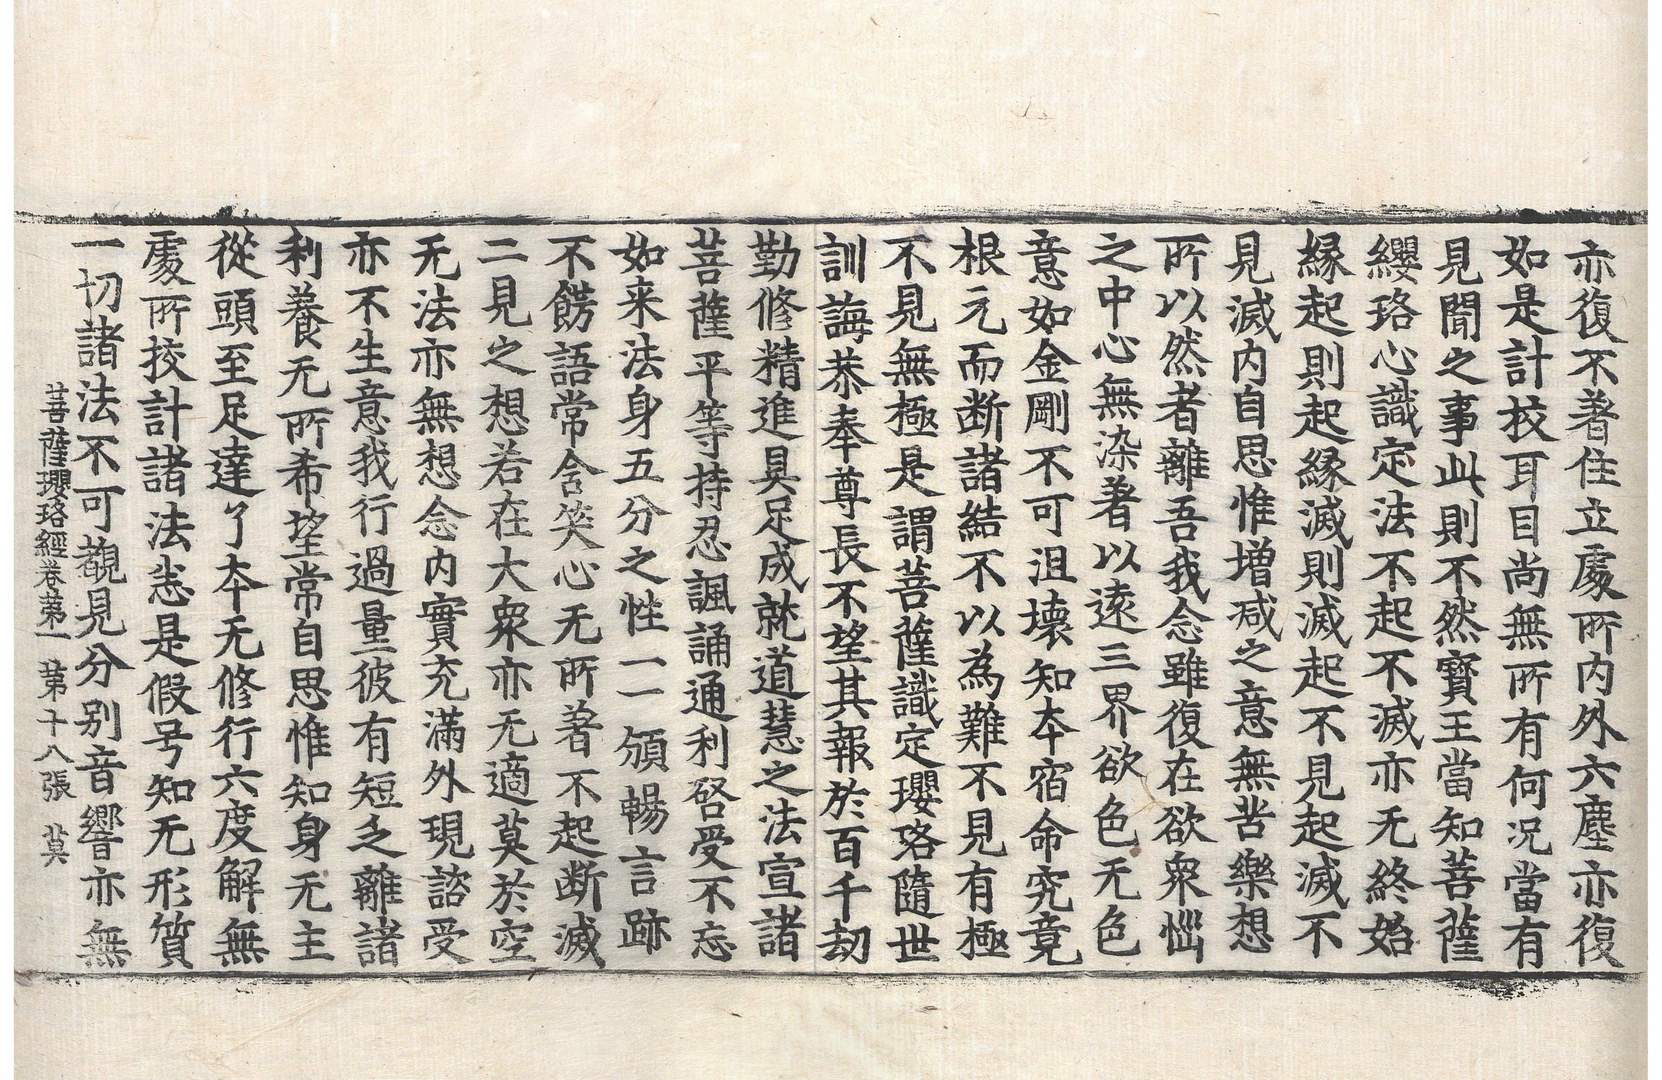 亦復不著住立處所内外六塵亦復
如是計挍耳目尚無所有何况當有
見聞之事此則不然寳王當知菩薩
纓珞心識定法不起不滅亦无終始
縁起則起縁滅則滅起不見起滅不
見滅内自思惟增减之意無苦樂想
所以然者離吾我念雖復在欲衆惱
之中心無染著以遠三界欲色无色
意如金剛不可沮壊知夲宿命究竟
根元而断諸結不以為難不見有極
不見無極是謂菩薩識定瓔珞隨世
訓誨恭奉尊長不望其報於百千劫
勤修精進具足成就道慧之法宣諸
菩薩平等持忍諷誦通利啓受不忘
如来法身五分之性一一頒暢言跡
不餝語常含笑心无所著不起断滅
二見之想若在大衆亦无適莫於空
无法亦無想念内實充滿外現諮受
亦不生意我行過量彼有短乏離諸
利養无所希望常自思惟知身无主
從頭至足達了夲无修行六度解無
處所挍計諸法悉是假号知无形質
一切諸法不可覩見分别音響亦無
菩薩瓔珞經卷第一　第十八張　莫